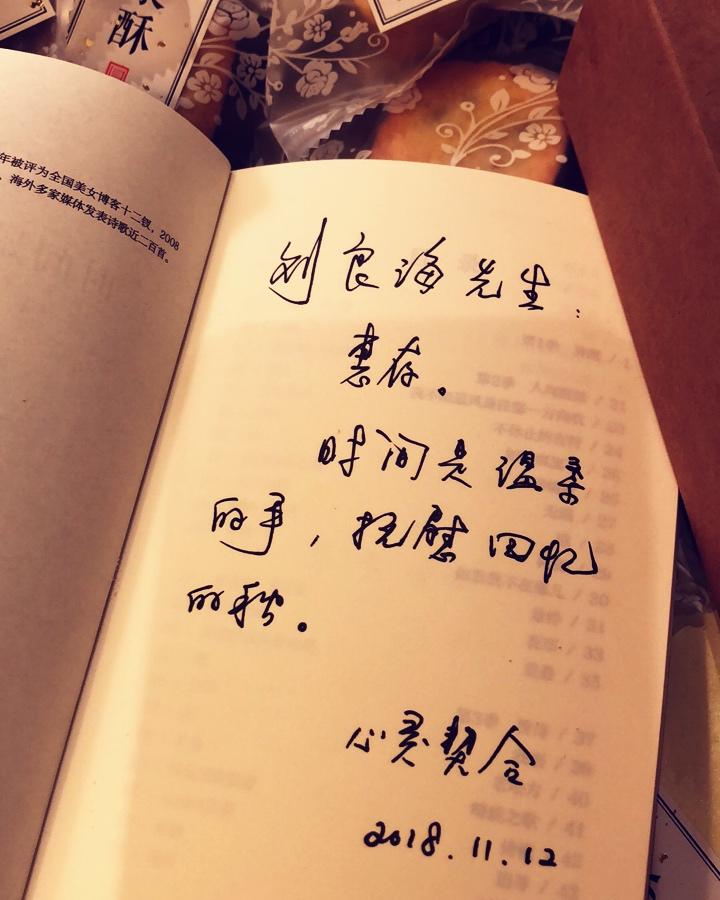 酥
年被评为全国美女博客十二钗，2008
海外多家媒体发表诗歌近二百首。
刘良海先生：
惠存。
时间是温柔
的手，抚慰回忆
的秋。
心灵契合
2018.11.12